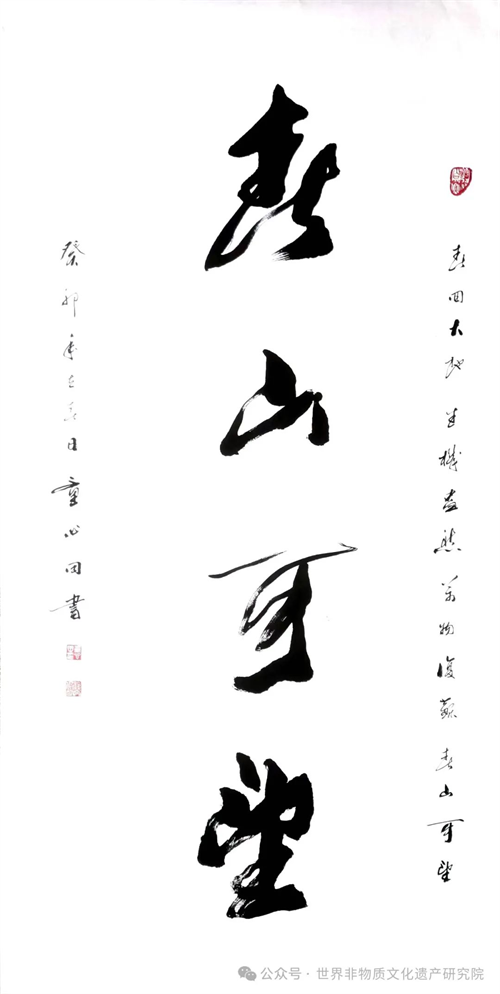 春回大地生機盎然萬物復蘇春山可望
春山可望
癸卯年立春日童心田書
公众号·世界非物质文化遗产研究院